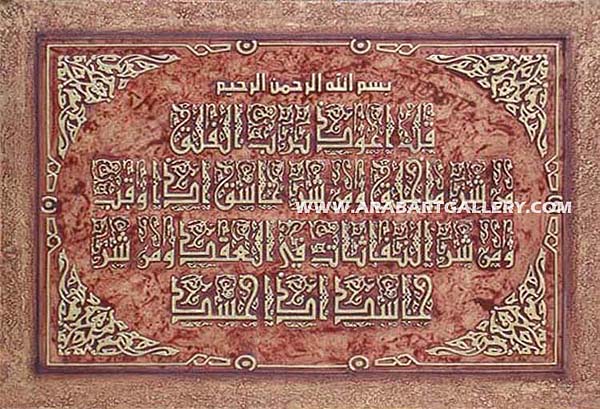 بسم الله الرحمن الرحيم
قل اعوذ برب الفلق
من شر ما خلق ومن شر غاسق اذا وقب
WWW.ARABARTGALLERY.COM
ومن شر النفاثات في العقد ومن شر
حاسد اذا حسد